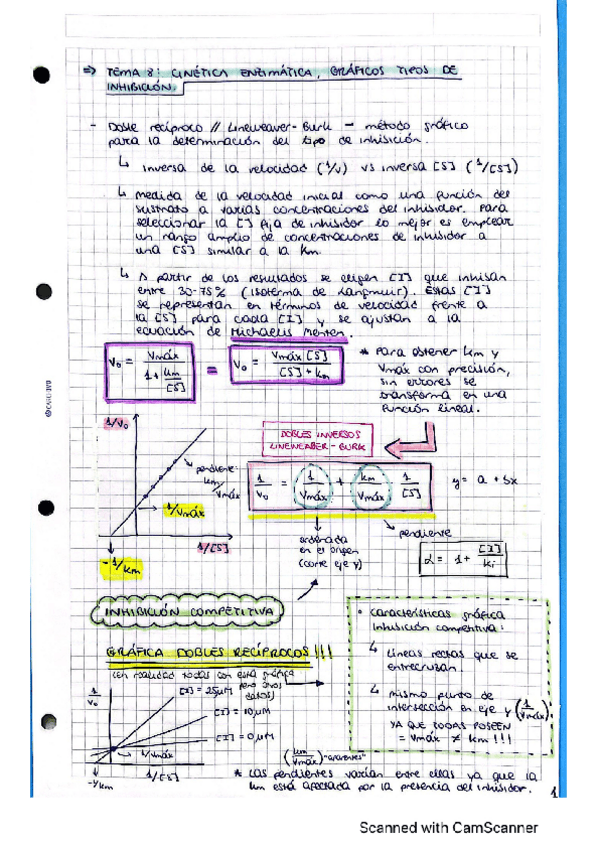 => TEMA 8: CINÉTICA ENZIMÁTICA, GRÁFICOS TIPOS DE
INHIBICIÓN.
- Doble recíproco // Lineweaver-Burk - método gráfico
para la determinación del tipo de inhibición.
↳ inversa de la velocidad (1/v) vs inversa [S] (1/[S])
↳ medida de la velocidad inicial como una función del
sustrato a varias concentraciones del inhibidor. Para
seleccionar la [ ] fija de inhibidor lo mejor es emplear
un rango amplio de concentraciones de inhibidor a
una [S] similar a la Km.
↳ A partir de los resultados se eligen [I] que inhiban
entre 30-75% (isoterma de Langmuir). Estas [I]
se representan en términos de velocidad frente a
la [S] para cada [I] y se ajustan a la
ecuación de Michaelis Menten.
V0 = Vmáx / 1 + Km/[S] = V0 = Vmáx [S] / [S] + Km
* Para obtener Km y
Vmáx con precisión,
sin errores se
transforma en una
función lineal.
1/V0
pendiente
Km/Vmáx
1/Vmáx
1/[S]
-1/Km
DOBLES INVERSOS
LINEWEABER-BURK
1/V0 = 1/Vmáx + Km/Vmáx 1/[S]
y = a + bx
ordenada
en el origen
(corte eje y)
pendiente
α = 1 + [I]/Ki
INHIBICIÓN COMPETITIVA
GRÁFICA DOBLES RECÍPROCOS!!!
(en realidad todas con esta gráfica
pero otros
datos)
1/V0
[I] = 25µM
[I] = 10µM
[I] = 0µM
1/Vmáx
1/[S]
-1/Km
(Km/Vmáx) "aparentes"
• Características gráfica
inhibición competitiva:
↳ Líneas rectas que se
entrecruzan.
↳ mismo punto de
intersección en eje y (1/Vmáx)
YA QUE TODAS POSEEN
= Vmáx ≠ Km!!!
* Las pendientes varían entre ellas ya que la
Km está afectada por la presencia del inhibidor.
1
Scanned with CamScanner